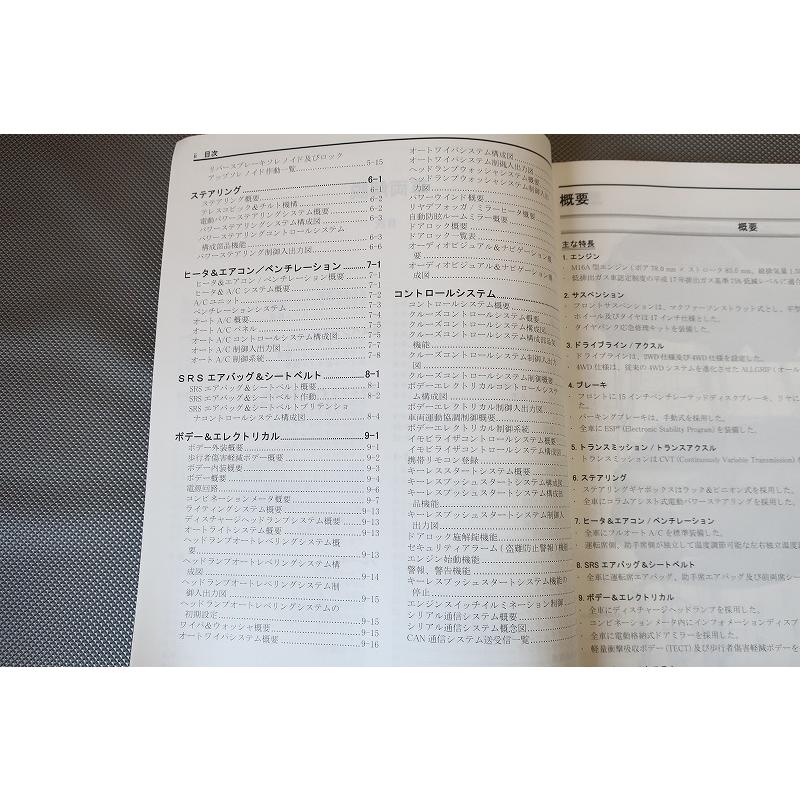 ii 目次
リバースブレーキソレノイド及びロック
アップソレノイド作動一覧 5-15
ステアリング 6-1
ステアリング概要 6-1
テレスコピック＆チルト機構 6-2
電動パワーステアリングシステム概要 6-2
パワーステアリングシステム構成図 6-3
パワーステアリングコントロールシステム
構成部品機能 6-3
パワーステアリング制御入出力図 6-6
ヒータ＆エアコン／ベンチレーション 7-1
ヒータ＆エアコン / ベンチレーション概要 7-1
ヒータ＆A/C システム概要 7-1
A/C ユニット 7-2
ベンチレーションシステム 7-3
オート A/C 概要 7-4
オート A/C パネル 7-5
オート A/C コントロールシステム構成図 7-5
オート A/C 制御入出力図 7-7
オート A/C 制御系統 7-8
SRS エアバッグ＆シートベルト 8-1
SRS エアバッグ＆シートベルト概要 8-1
SRS エアバッグ＆シートベルト作動 8-2
SRS エアバッグ＆シートベルトプリテンショ
ナコントロールシステム構成図 8-4
ボデー＆エレクトリカル 9-1
ボデー外装概要 9-1
歩行者傷害軽減ボデー概要 9-2
ボデー内装概要 9-3
ボデー概要 9-4
電源回路 9-6
コンビネーションメータ概要 9-7
ライティングシステム概要 9-13
ディスチャージヘッドランプシステム概要 9-13
オートライトシステム概要 9-13
ヘッドランプオートレベリングシステム概
要 9-13
ヘッドランプオートレベリングシステム構
成図 9-14
ヘッドランプオートレベリングシステム制
御入出力図 9-15
ヘッドランプオートレベリングシステムの
初期設定 9-15
ワイパ＆ウォッシャ概要 9-15
オートワイパシステム概要 9-16
オートワイパシステム構成図
オートワイパシステム制御入出力図
ヘッドランプウォッシャシステム概要
ヘッドランプウォッシャシステム制御入出
力図
パワーウインド概要
リヤデフォッガ / ミラーヒータ概要
自動防眩ルームミラー概要
ドアロック概要
ドアロック一覧表
オーディオビジュアル＆ナビゲーション概
要
オーディオビジュアル＆ナビゲーション構
成図
コントロールシステム
コントロールシステム概要
クルーズコントロールシステム概要
クルーズコントロールシステム構成図
クルーズコントロールシステム構成部品
機能
クルーズコントロールシステム制御入出力
図
クルーズコントロールシステム制御概要
ボデーエレクトリカルコントロールシステ
ム構成図
ボデーエレクトリカル制御入出力図
車両運動協調制御概要
ボデーエレクトリカル制御系統
イモビライザコントロールシステム概要
イモビライザコントロールシステム構成図
携帯リモコン登録
キーレススタートシステム概要
キーレスプッシュスタートシステム構成図
キーレスプッシュスタートシステム構成部
品機能
キーレスプッシュスタートシステム制御入
出力図
ドアロック施解錠機能
セキュリティアラーム ( 盗難防止警報 ) 機能
エンジン始動機能
警報、警告機能
キーレスプッシュスタートシステム機能の
停止
エンジンスイッチイルミネーション制御
シリアル通信システム概要
シリアル通信システム概念図
CAN 通信システム送受信一覧
概要
概要
主な特長
1. エンジン
・ M16A 型エンジン ( ボア 78.0 mm × ストローク 83.0 mm、総排気量 1.58
・ 低排出ガス車認定制度の平成 17 年排出ガス基準 75% 低減レベルに適合
2. サスペンション
・ フロントサスペンションは、マクファーソンストラット式とし、
・ ホイール及びタイヤは 17 インチ仕様とした。
・ タイヤパンク応急修理キットを装備した。
3. ドライブライン / アクスル
・ ドライブラインは、2WD 仕様及び 4WD 仕様を設定した。
・ 4WD 仕様は、従来の 4WD システムを進化させた ALLGRIP ( オール
4. ブレーキ
・ フロントに 15 インチベンチレーテッドディスクブレーキ、リヤに
た。
・ パーキングブレーキは、手動式を採用した。
・ 全車に ESP® (Electronic Stability Program) を装備した。
5. トランスミッション / トランスアクスル
・ トランスミッションは CVT (Continuously Variable Transmission) を
6. ステアリング
・ ステアリングギヤボックスはラック＆ピニオン式を採用した。
・ 全車にコラムアシスト式電動パワーステアリングを採用した。
7. ヒータ＆エアコン / ベンチレーション
・ 全車にフルオート A/C を標準装備した。
・ 運転席側、助手席側が独立して温度調節可能な左右独立温度
8. SRS エアバッグ＆シートベルト
・ 全車に運転席エアバッグ、助手席エアバッグ及び前両席シー
9. ボデー＆エレクトリカル
・ 全車にディスチャージヘッドランプを採用した。
・ コンビネーションメータ内にインフォメーションディスプ
・ 全車に電動格納式ドアミラーを採用した。
・ 軽量衝撃吸収ボデー (TECT) 及び歩行者傷害軽減ボデーを